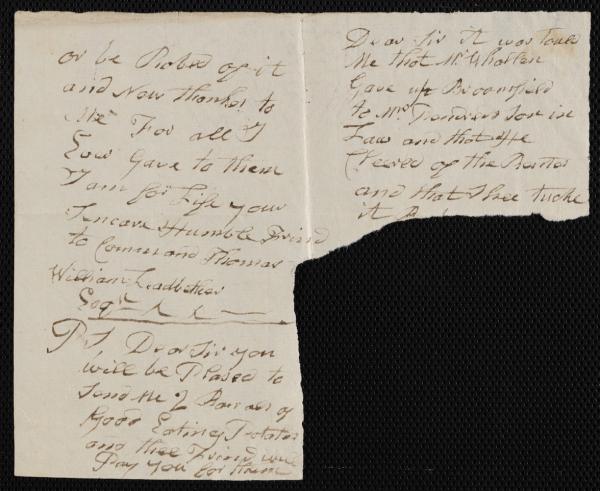 or be Robed of it
and Now thanks to
Me For all I
Eow Gave to them
I am for Life your
Sincare Humble Frind
to Command Thomas
William Leadbetter
Esqr
PS, Dear Sir you
will be Plased to
Send Me 2 Barrels of
Good Eating Potatos
and thee Frind will
Pay you for them
Dear Sir it was tould
Me that Mr Whallen
Gave up Broomfield
to Mrs Son in
Law and that He
Cleared of the Rentes
and that Shee tucke
it